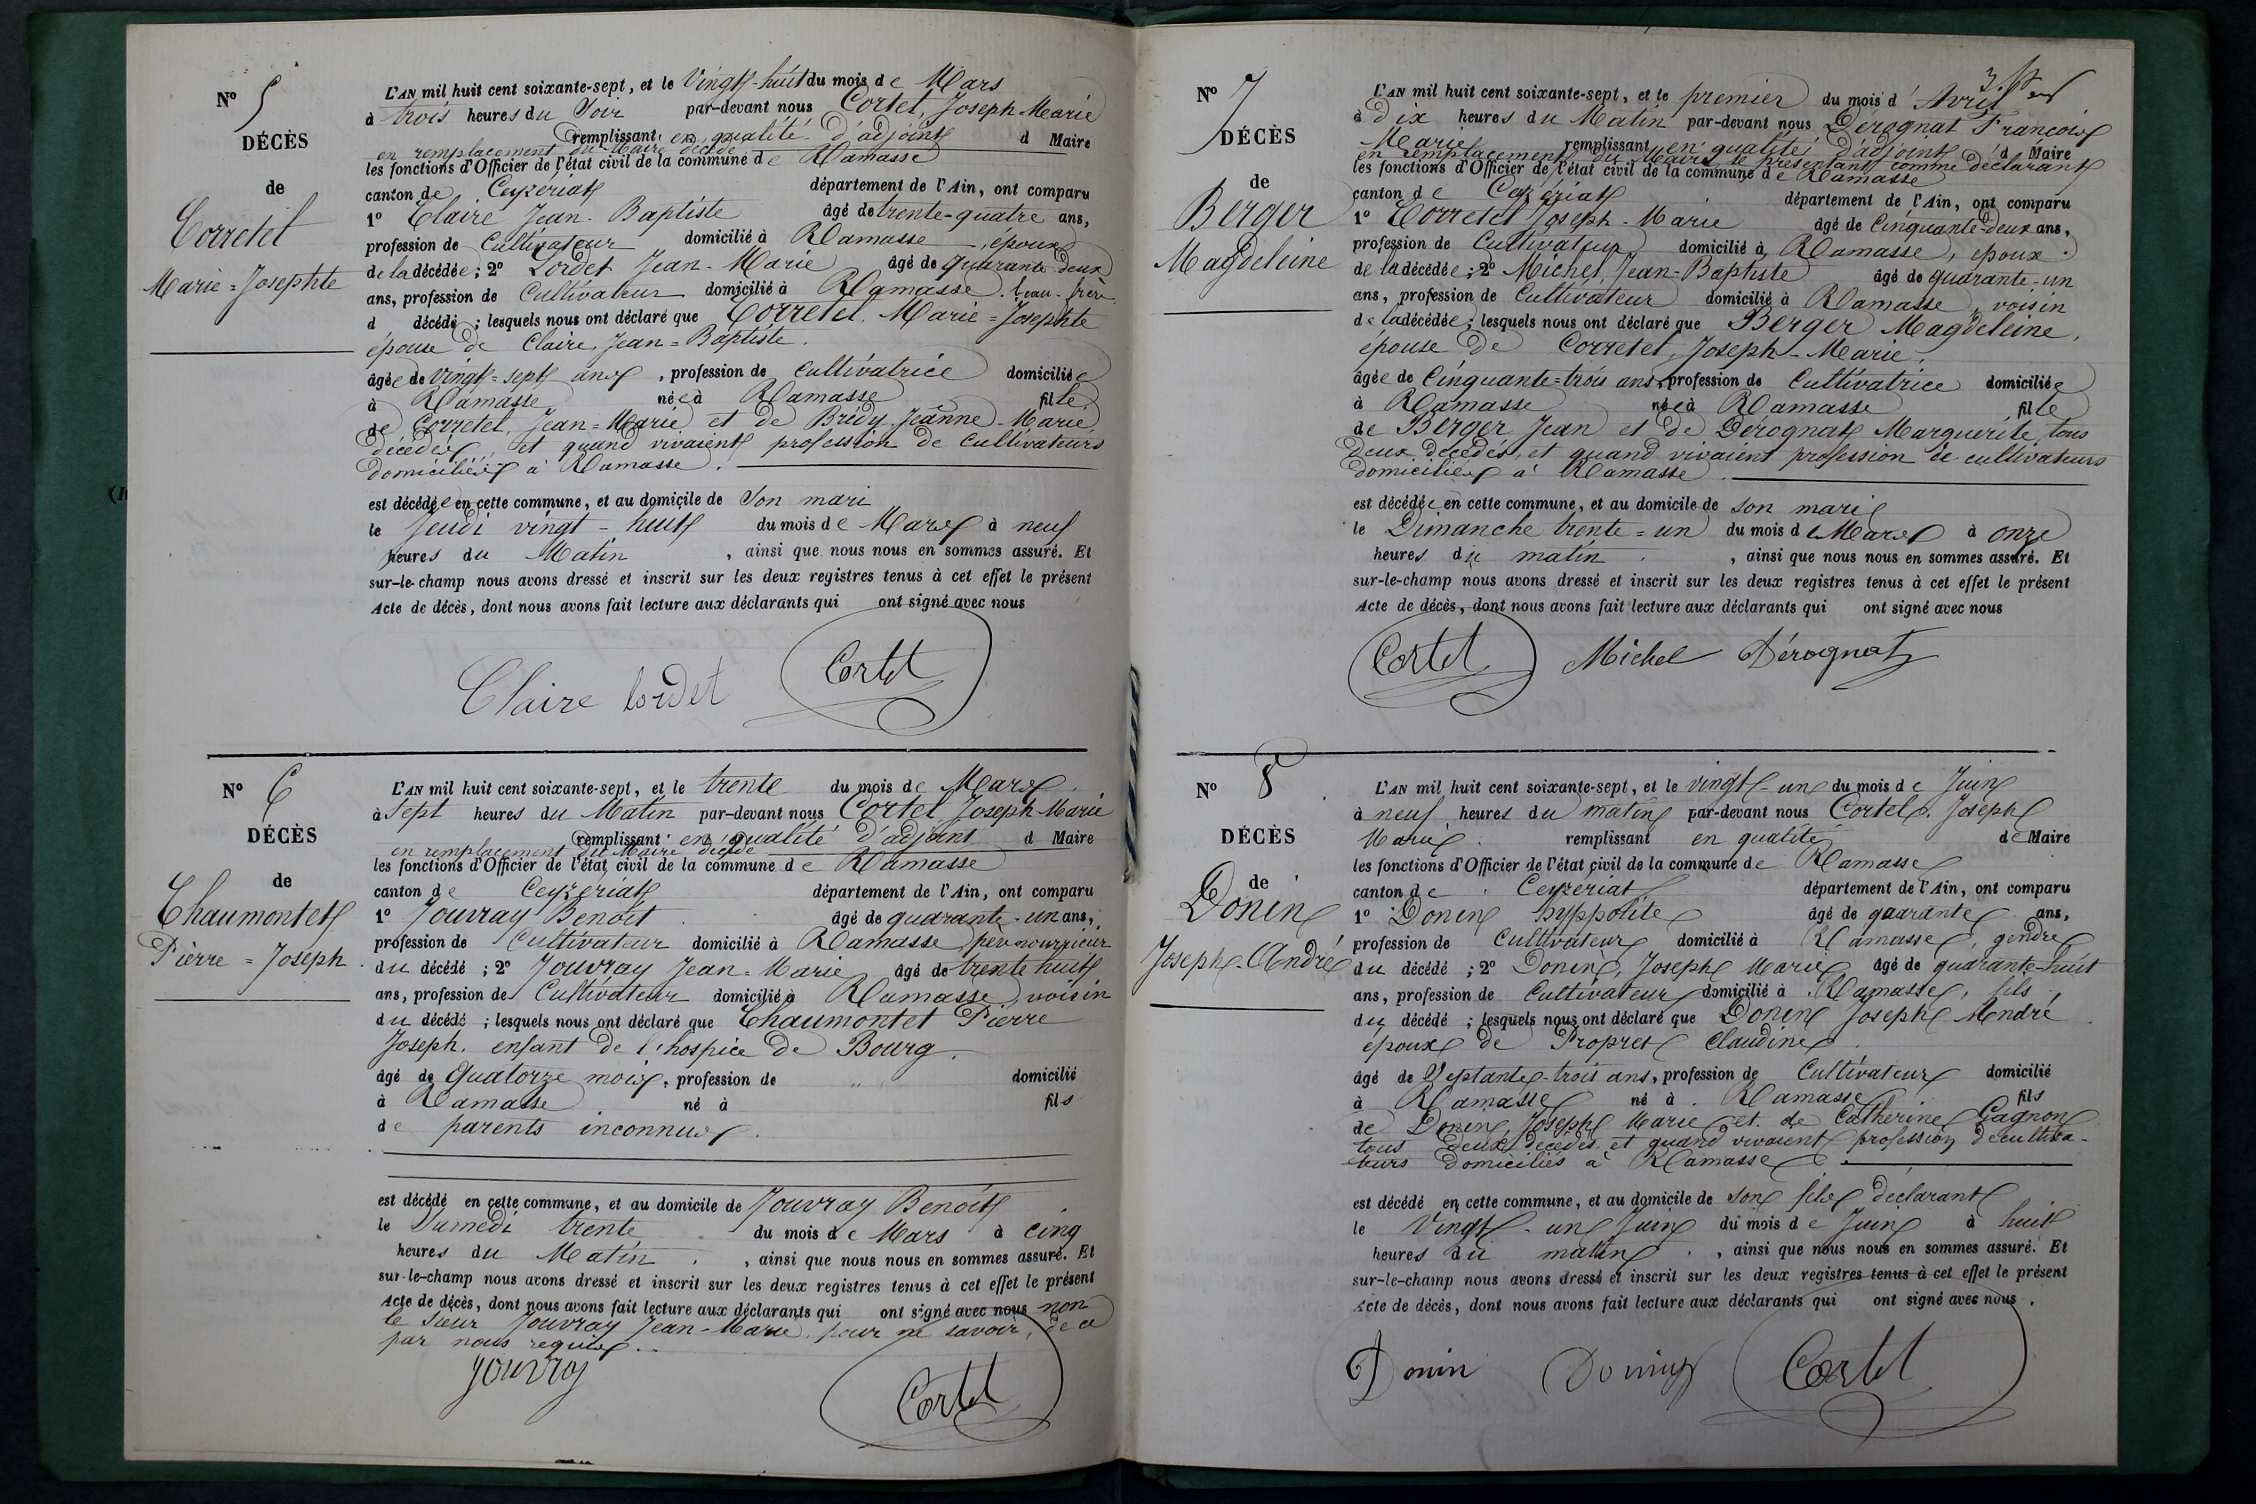 N° 5
DÉCÈS
de
Corretel
Marie=Josephte
L'AN mil huit cent soixante-sept, et le Vingt-huit du mois de Mars
à trois heures du Soir par-devant nous Cortet, Joseph Marie
remplissant en qualité d'adjoint d Maire
en remplacement du Maire décédé
les fonctions d'Officier de l'état civil de la commune de Ramasse
canton de Ceyzériat département de l'Ain, ont comparu
1° Claire Jean-Baptiste âgé de trente-quatre ans,
profession de Cultivateur domicilié à Ramasse, époux
de la décédée; 2° Lordet Jean-Marie âgé de quarante deux
ans, profession de Cultivateur domicilié à Ramasse, beau-frère
d décédé; lesquels nous ont déclaré que Corretel, Marie=Josephte
épouse de Claire, Jean=Baptiste.
âgée de vingt=sept ans, profession de Cultivatrice domiciliée
à Ramasse née à Ramasse fille
de Corretel, Jean=Marie et de Brédy Jeanne-Marie
décédés, et quand vivaient profession de Cultivateurs
domiciliés à Ramasse.
est décédée en cette commune, et au domicile de Son mari
le Jeudi vingt=huit du mois de Mars à neuf
heures du Matin, ainsi que nous nous en sommes assuré. Et
sur-le-champ nous avons dressé et inscrit sur les deux registres tenus à cet effet le présent
Acte de décès, dont nous avons fait lecture aux déclarants qui ont signé avec nous
Claire Lordet Cortet
N° 6
DÉCÈS
de
Chaumontet
Pierre=Joseph
L'AN mil huit cent soixante-sept, et le trente du mois de Mars
à Sept heures du Matin par-devant nous Cortet, Joseph Marie
remplissant en qualité d'adjoint d Maire
en remplacement du Maire décédé
les fonctions d'Officier de l'état civil de la commune de Ramasse
canton de Ceyzériat département de l'Ain, ont comparu
1° Jouvray Benoit âgé de quarante-un ans,
profession de Cultivateur domicilié à Ramasse, père nourricier
du décédé; 2° Jouvray Jean-Marie âgé de trente huit
ans, profession de Cultivateur domicilié à Ramasse, voisin
du décédé; lesquels nous ont déclaré que Chaumontet Pierre
Joseph. enfant de l'hospice de Bourg.
âgé de Quatorze mois, profession de domicilié
à Ramasse né à fils
de parents inconnus.
est décédé en cette commune, et au domicile de Jouvray Benoit
le Samedi trente du mois de Mars à cinq
heures du Matin, ainsi que nous nous en sommes assuré. Et
sur-le-champ nous avons dressé et inscrit sur les deux registres tenus à cet effet le présent
Acte de décès, dont nous avons fait lecture aux déclarants qui ont signé avec nous non
le sieur Jouvray Jean-Marie, pour ne savoir, de ce
par nous requis.
Jouvray Cortet
N° 7
DÉCÈS
de
Berger
Magdeleine
L'AN mil huit cent soixante-sept, et le premier du mois d'Avril
à Dix heures du Matin par-devant nous Dérognat François
Marie remplissant en qualité d'adjoint d Maire
en remplacement du Maire se présentant comme déclarant
les fonctions d'Officier de l'état civil de la commune de Ramasse
canton de Ceyzériat département de l'Ain, ont comparu
1° Corretel Joseph-Marie âgé de Cinquante-deux ans,
profession de Cultivateur domicilié à Ramasse, époux
de la décédée; 2° Michel, Jean-Baptiste âgé de quarante-un
ans, profession de Cultivateur domicilié à Ramasse, voisin
de la décédée; lesquels nous ont déclaré que Berger Magdeleine,
épouse de Corretel, Joseph-Marie.
âgée de Cinquante=trois ans, profession de Cultivatrice domiciliée
à Ramasse née à Ramasse fille
de Berger Jean et de Dérognat Marguerite, tous
deux décédés, et quand vivaient profession de cultivateurs
domiciliés à Ramasse.
est décédée en cette commune, et au domicile de son mari
le Dimanche trente=un du mois de Mars à onze
heures du matin, ainsi que nous nous en sommes assuré. Et
sur-le-champ nous avons dressé et inscrit sur les deux registres tenus à cet effet le présent
Acte de décès, dont nous avons fait lecture aux déclarants qui ont signé avec nous
Cortet Michel Dérognat
N° 8
DÉCÈS
de
Donin
Joseph-André
L'AN mil huit cent soixante-sept, et le vingt-un du mois de Juin
à neuf heures du matin par-devant nous Cortet, Joseph
Marie remplissant en qualité de Maire
les fonctions d'Officier de l'état civil de la commune de Ramasse
canton de Ceyzériat département de l'Ain, ont comparu
1° Donin hyppolite âgé de quarante ans,
profession de Cultivateur domicilié à Ramasse, gendre
du décédé; 2° Donin, Joseph Marie âgé de quarante-huit
ans, profession de Cultivateur domicilié à Ramasse, fils
du décédé; lesquels nous ont déclaré que Donin Joseph André
époux de Propret Claudine
âgé de Septante-trois ans, profession de Cultivateur domicilié
à Ramasse né à Ramasse fils
de Donin Joseph Marie et de Catherine Gagnon
tous deux décédés et quand vivaient profession de cultiva-
teurs domiciliés à Ramasse
est décédé en cette commune, et au domicile de son fils déclarant
le Vingt-un Juin du mois de Juin à huit
heures du matin, ainsi que nous nous en sommes assuré. Et
sur-le-champ nous avons dressé et inscrit sur les deux registres tenus à cet effet le présent
Acte de décès, dont nous avons fait lecture aux déclarants qui ont signé avec nous.
Donin Donin Cortet